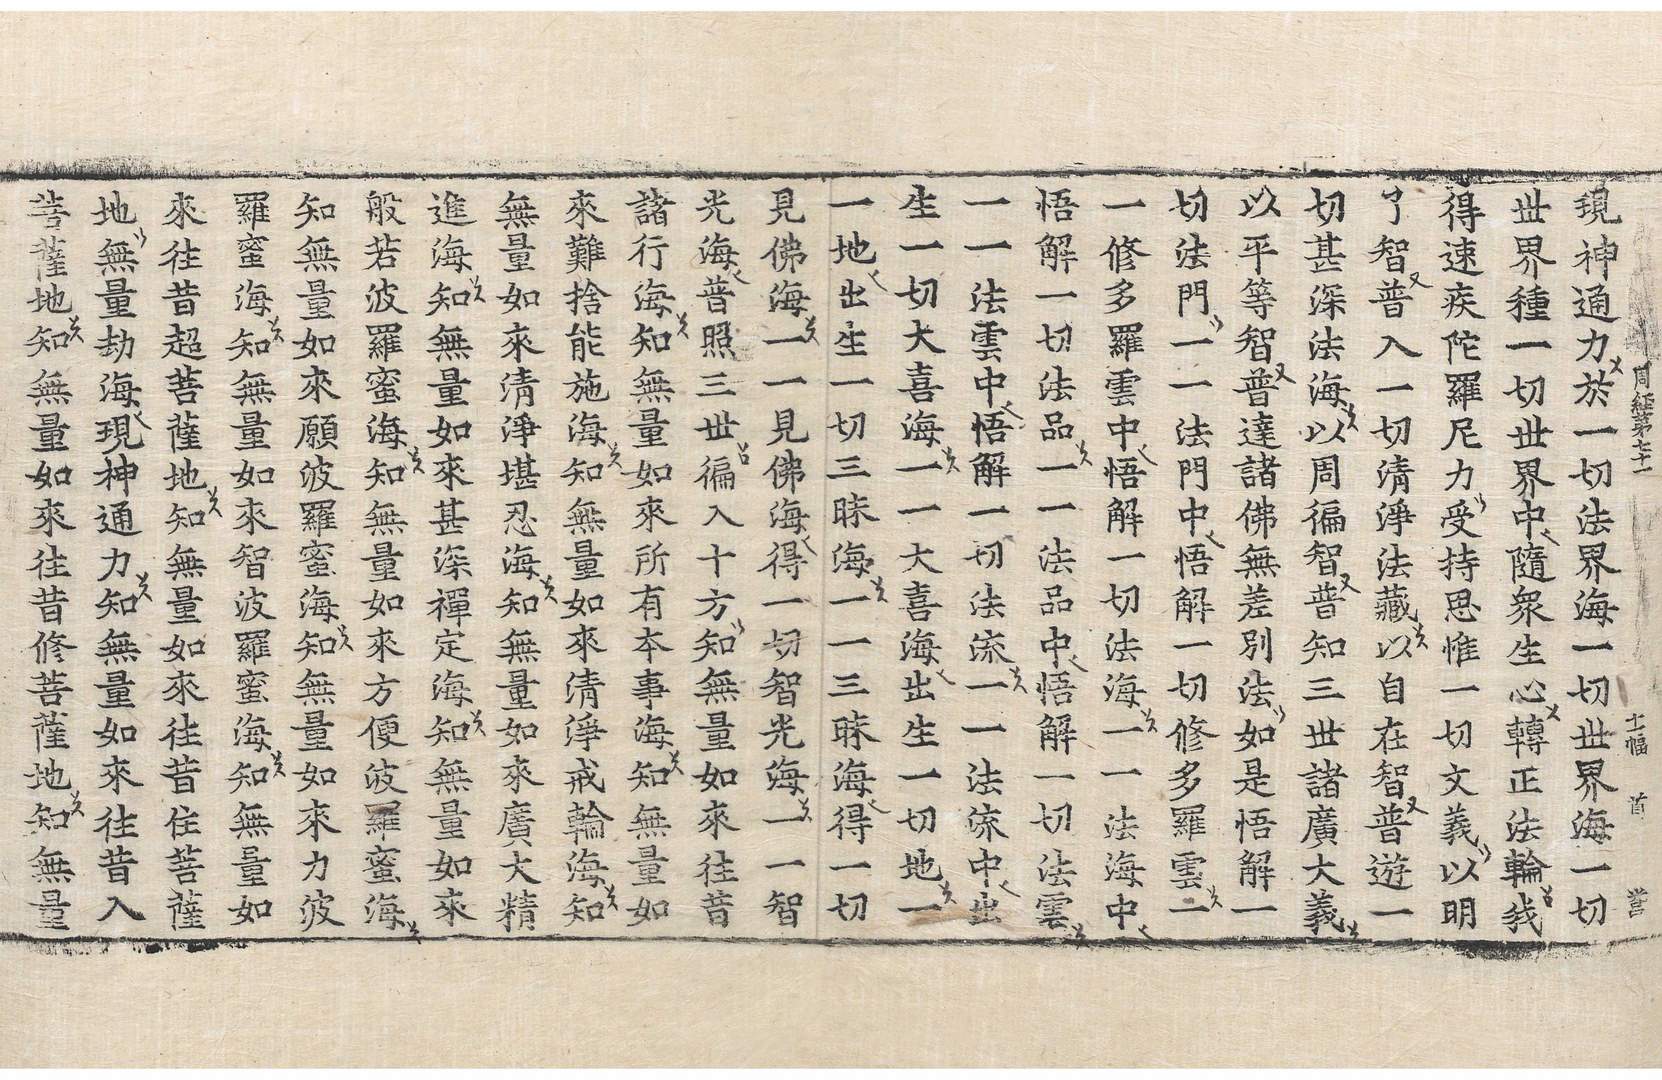 周経第七十一　十一幅　首　誉
現神通力於一切法界海一切世界海一切
世界種一切世界中隨衆生心轉正法輪我
得速疾陀羅尼力受持思惟一切文義以明
了智普入一切清淨法藏以自在智普遊一
切甚深法海以周徧智普知三世諸廣大義
以平等智普達諸佛無差別法如是悟解一
切法門一一法門中悟解一切修多羅雲一
一修多羅雲中悟解一切法海一一法海中
悟解一切法品一一法品中悟解一切法雲
一一法雲中悟解一切法流一一法流中出
生一切大喜海一一大喜海出生一切地一
一地出生一切三昧海一一三昧海得一切
見佛海一一見佛海得一切智光海一一智
光海普照三世徧入十方知無量如來往昔
諸行海知無量如來所有本事海知無量如
來難捨能施海知無量如來清淨戒輪海知
無量如來清淨堪忍海知無量如來廣大精
進海知無量如來甚深禪定海知無量如來
般若波羅蜜海知無量如來方便波羅蜜海
知無量如來願波羅蜜海知無量如來力波
羅蜜海知無量如來智波羅蜜海知無量如
來往昔超菩薩地知無量如來往昔住菩薩
地無量劫海現神通力知無量如來往昔入
菩薩地知無量如來往昔修菩薩地知無量